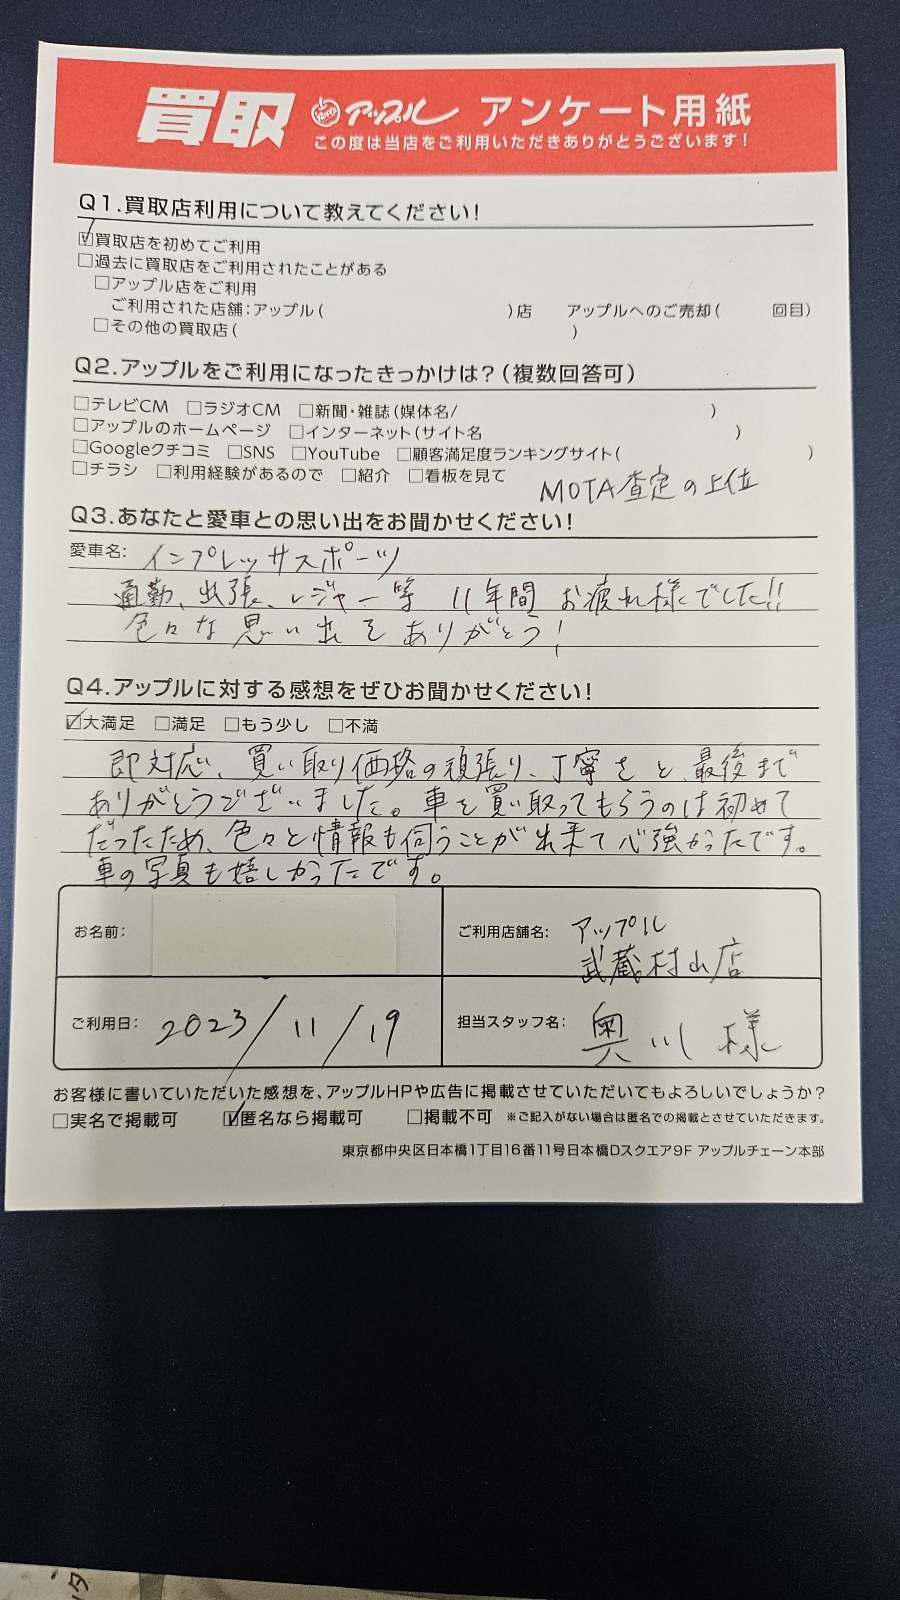 買取 アップル アンケート用紙
この度は当店をご利用いただきありがとうございます!
Q1.買取店利用について教えてください!
☑買取店を初めてご利用
□過去に買取店をご利用されたことがある
□アップル店をご利用
ご利用された店舗:アップル( )店 アップルへのご売却( 回目)
□その他の買取店( )
Q2.アップルをご利用になったきっかけは?(複数回答可)
□テレビCM □ラジオCM □新聞・雑誌(媒体名/ )
□アップルのホームページ □インターネット(サイト名 )
□Googleクチコミ □SNS □YouTube □顧客満足度ランキングサイト( )
□チラシ □利用経験があるので □紹介 □看板を見て
MOTA査定の上位
Q3.あなたと愛車との思い出をお聞かせください!
愛車名: インプレッサスポーツ
通勤、出張、レジャー等 11年間 お疲れ様でした!!
色々な思い出をありがとう!
Q4.アップルに対する感想をぜひお聞かせください!
☑大満足 □満足 □もう少し □不満
即対応、買い取り価格の頑張り、丁寧さと、最後まで
ありがとうございました。車を買い取ってもらうのは初めて
だったため、色々と情報も伺うことが出来て心強かったです。
車の写真も嬉しかったです。
お名前: ご利用店舗名: アップル
武蔵村山店
ご利用日: 2023/11/19 担当スタッフ名: 奥川 様
お客様に書いていただいた感想を、アップルHPや広告に掲載させていただいてもよろしいでしょうか?
□実名で掲載可 ☑匿名なら掲載可 □掲載不可 ※ご記入がない場合は匿名での掲載とさせていただきます。
東京都中央区日本橋1丁目16番11号日本橋Dスクエア9F アップルチェーン本部